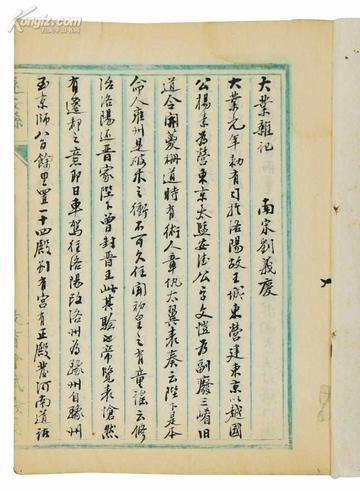 大業雜記
南宋劉義慶
大業元年勅有司於洛陽故王城東營建東京以越國
公楊素為營東京大監安德公宇文愷為副廢三崤舊
道令開菱柵道時有術人章仇大翼表奏云陛下是木
命人雍州是破木之衝不可久住開初皇之有童謠云修
治洛陽還晉家陛下曾封晉王此其驗也帝覽表愴然
有遷都之意即日車駕往洛陽改洛州為豫州自豫州
至京師八百餘里置一十四殿別有宮有正殿發河南道諸